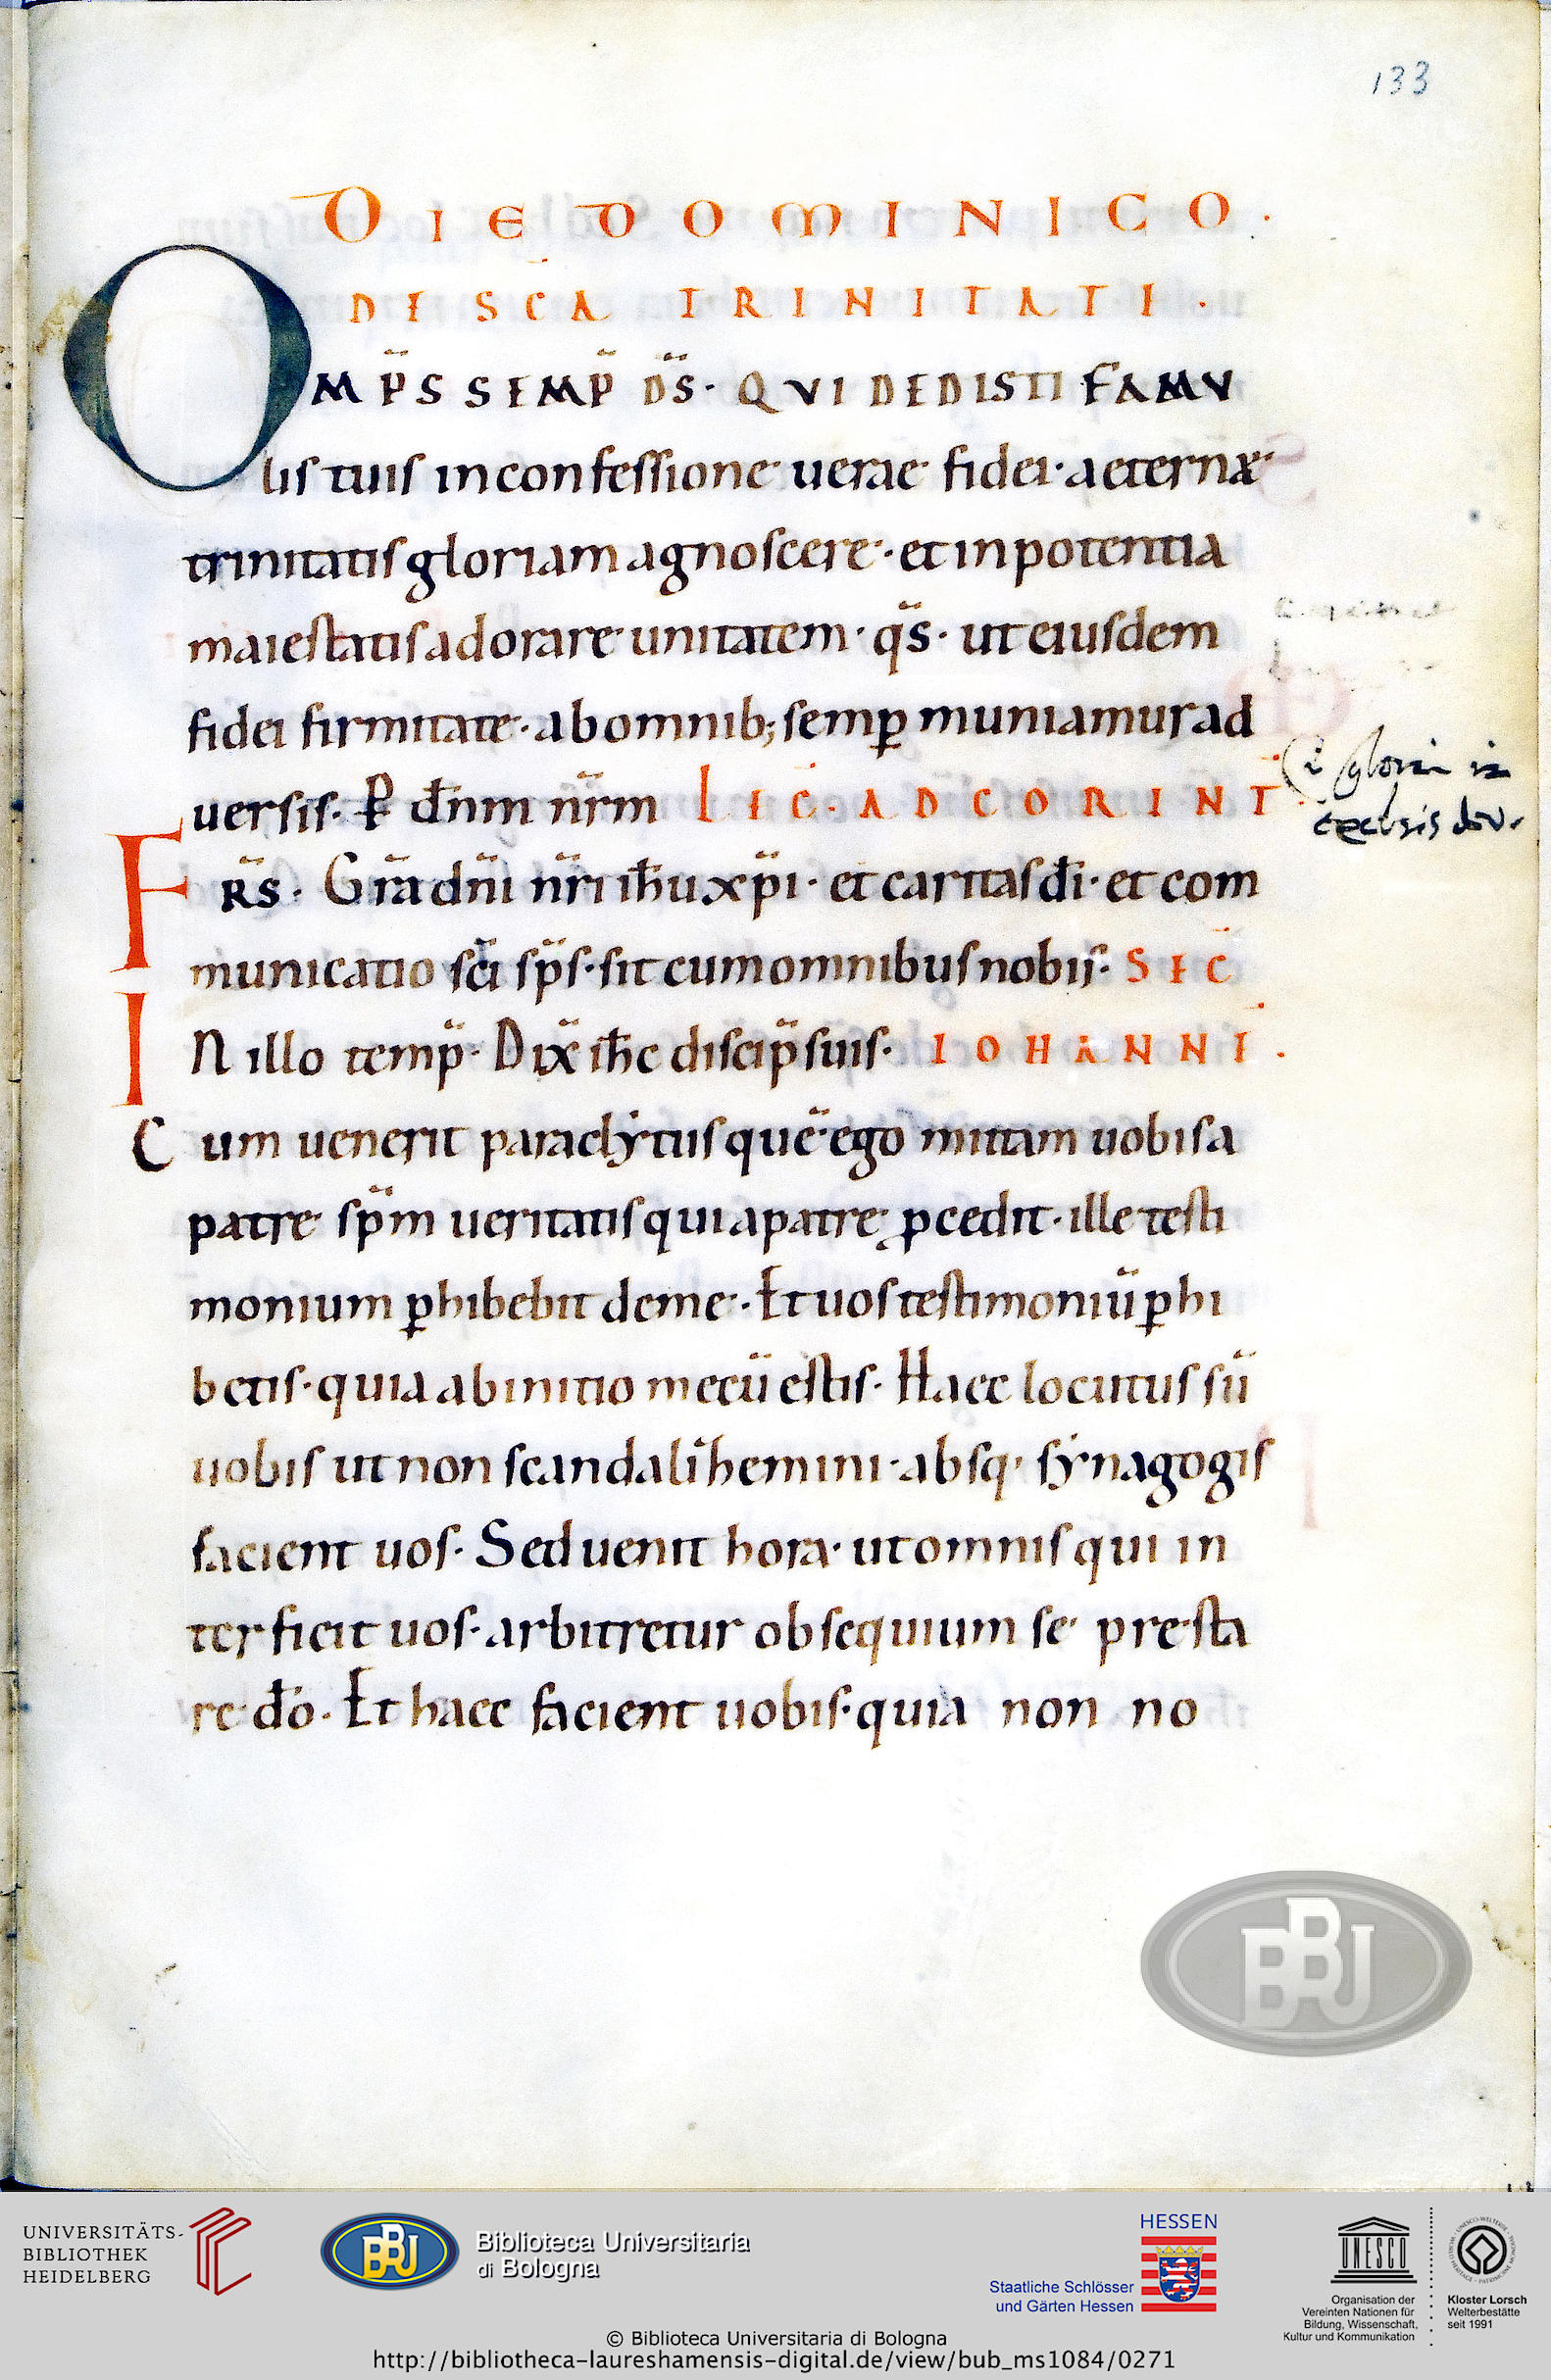 133
DIE DOMINICO.
DE SCĀ TRINITATE.
OMP̄S SEMP̄ D̄S· QVI DEDISTI FAMV
lis tuis in confessione uerae fidei· aeternæ
trinitatis gloriam agnoscere· et in potentia
maiestatis adorare unitatem· q̄s· ut eiusdem
fidei firmitate· ab omnib; semꝑ muniamur ad
uersis· P̄ dn̄m nr̄m LEC̄· AD CORINT̄
FRS̄· Grā dn̄i nr̄i ih̄u xp̄i· et caritas dī· et com
municatio sc̄i sp̄s· sit cum omnibus nobis· SEC̄
IN illo temp̄· Dix̄ ih̄c discip̄ suis· IOHANNĒ.
Cum uenerit paraclẏtus quē ego mittam uobis a
patre sp̄m ueritatis qui a patre ꝓcedit· ille testi
monium ꝑhibebit de me· Et uos testimoniū ꝑhi
betis· quia ab initio mecū estis· Haec locutus sū
uobis ut non scandalihemini· absq· sẏnagogis
facient uos· Sed uenit hora· ut omnis qui in
terficit uos· arbitretur obsequium se presta
re dō· Et haec facient uobis· quia non no
gloria in
excelsis deo.
BBU
UNIVERSITÄTS-
BIBLIOTHEK
HEIDELBERG
BBU
Biblioteca Universitaria
di Bologna
HESSEN
Staatliche Schlösser
und Gärten Hessen
UNESCO
Organisation der
Vereinten Nationen für
Bildung, Wissenschaft,
Kultur und Kommunikation
Kloster Lorsch
Welterbestätte
seit 1991
© Biblioteca Universitaria di Bologna
http://bibliotheca-laureshamensis-digital.de/view/bub_ms1084/0271